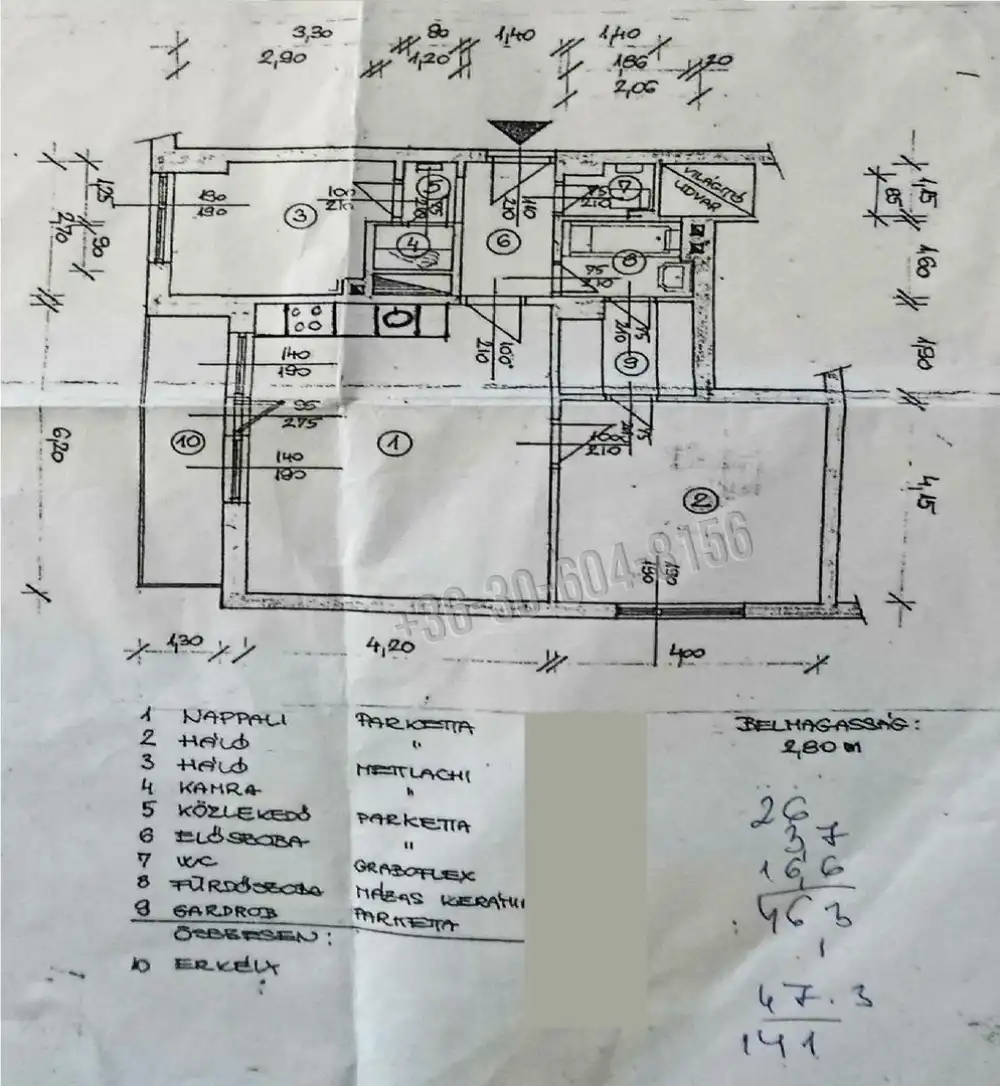 3,30 80 1,40 1,40
2,90 1,20 1,86 20
2,06
1,25
2,70
90
190
190
3
100
210
5
75
210
4
6
110
210
75
210
7
VILÁGÍTÓ
UDVAR
85
1,15
1,60
8
75
210
100
210
75
210
9
1,90
140
190
95
275
140
190
10
1
6,20
100
210
75
210
2
190
190
4,15
+36-30-604-8156
1,30 4,20 400
1 NAPPALI PARKETTA
2 HÁLÓ "
3 HÁLÓ METTLACHI
4 KAMRA "
5 KÖZLEKEDŐ PARKETTA
6 ELŐSZOBA "
7 WC GRABOFLEX
8 FÜRDŐSZOBA MÁZAS KERÁMI
9 GARDROB PARKETTA
ÖSSZESEN:
10 ERKÉLY
BELMAGASSÁG:
2,80 m
26
37
16,6
46 3
1
47.3
141